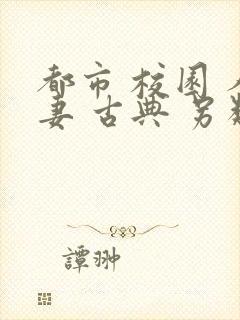 都市 校园
妻 古典 另
譚翀